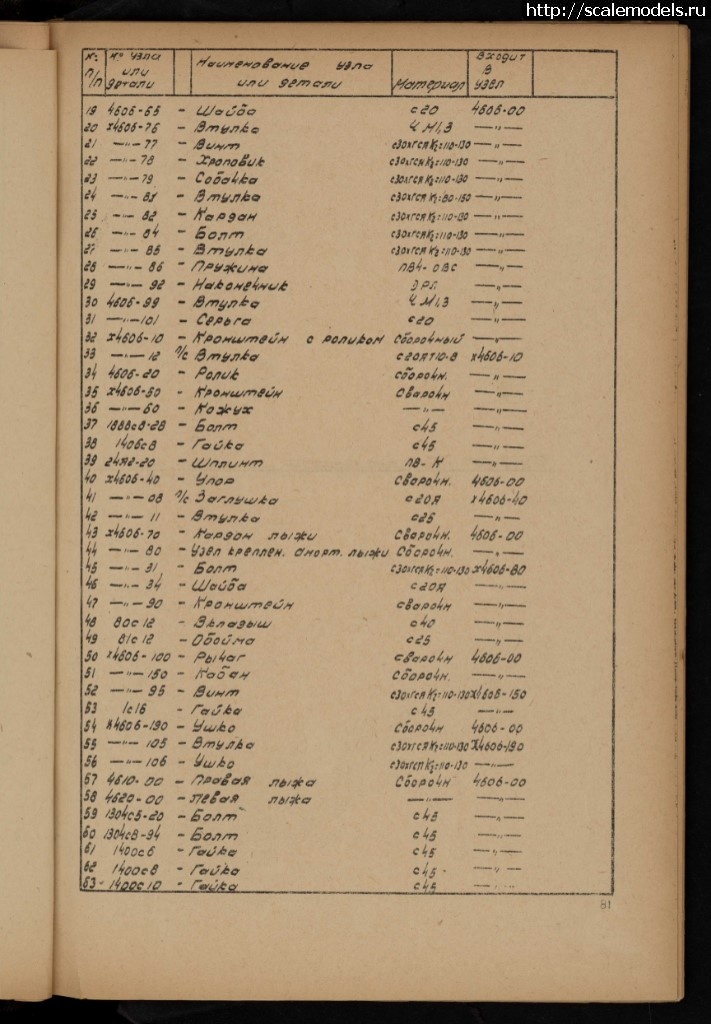 http://scalemodels.ru
№ п/п № узла или детали Наименование узла или детали Материал Входит в узел
19 4606-65 - Шайба с20 4606-00
20 х4606-76 - Втулка ЧМ1,3 —"—
21 —"— 77 - Винт с30хгсяк₂=110-130 —"—
22 —"— 78 - Храповик с30хгсяк₂=110-130 —"—
23 —"— 79 - Собачка с30хгсяк₂=110-130 —"—
24 —"— 81 - Втулка с30хгсяк₂=130-150 —"—
25 —"— 82 - Кардан с30хгсяк₂=110-130 —"—
26 —"— 84 - Болт с30хгсяк₂=110-130 —"—
27 —"— 85 - Втулка с30хгсяк₂=110-130 —"—
28 —"— 86 - Пружина ПВ4-ОВС —"—
29 —"— 92 - Наконечник —"—
30 4606-99 - Втулка ЧМ1,3 —"—
31 —"—101 - Серьга с20 —"—
32 х4606-10 - Кронштейн с роликом Сборочный —"—
33 —"— 12 п/с Втулка с20ЯТ10-8 х4606-10
34 4606-20 - Ролик Сборочн. —"—
35 х4606-50 - Кронштейн Сварочн —"—
36 —"— 60 - Кожух —"— —"—
37 1888с8-28 - Болт с45 —"—
38 1406с8 - Гайка с45 —"—
39 24А2-20 - Шплинт ПВ-К —"—
40 х4606-40 - Упор Сварочн. 4606-00
41 —"— 08 п/с Заглушка с20Я х4606-40
42 —"— 11 - Втулка с25 —"—
43 х4606-70 - Кардан лыжи Сварочн. 4606-00
44 —"— 80 - Узел креплен. аморт. лыжи Сборочн. —"—
45 —"— 31 - Болт с30хгсяк₂=110-130 х4606-80
46 —"— 34 - Шайба с20Я —"—
47 —"— 90 - Кронштейн сварочн —"—
48 80с12 - Вкладыш с40 —"—
49 81с12 - Обойма с25 —"—
50 х4606-100 - Рычаг сварочн 4606-00
51 —"—150 - Кабан Сборочн. —"—
52 —"— 95 - Винт с30хгсяк₂=110-130 х4606-150
53 1с16 - Гайка с45 —"—
54 х4606-190 - Ушко Сборочн 4606-00
55 —"— 105 - Втулка с30хгсяк₂=110-130 х4606-190
56 —"— 106 - Ушко с30хгсяк₂=110-130 —"—
57 4610-00 - Правая лыжа Сборочн 4606-00
58 4620-00 - Левая лыжа —"— —"—
59 1304с5-20 - Болт с45 —"—
60 1304с8-94 - Болт с45 —"—
61 1400с6 - Гайка с45 —"—
62 1400с8 - Гайка с45 —"—
63 1400с10 - Гайка с45 —"—
81